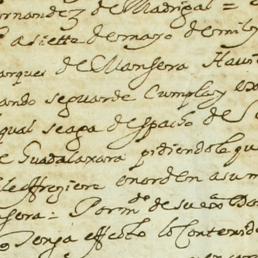 ernandez de Madrigal =
a siette de mayo de mil y
arques de Mansera
ando se guarde cumpla y
qual se aga despacho de
e Guadalaxara pidiendole qu
le offreziere en orden a su m
sera = Por mdo de su exa
Tenga effecto lo Contenid